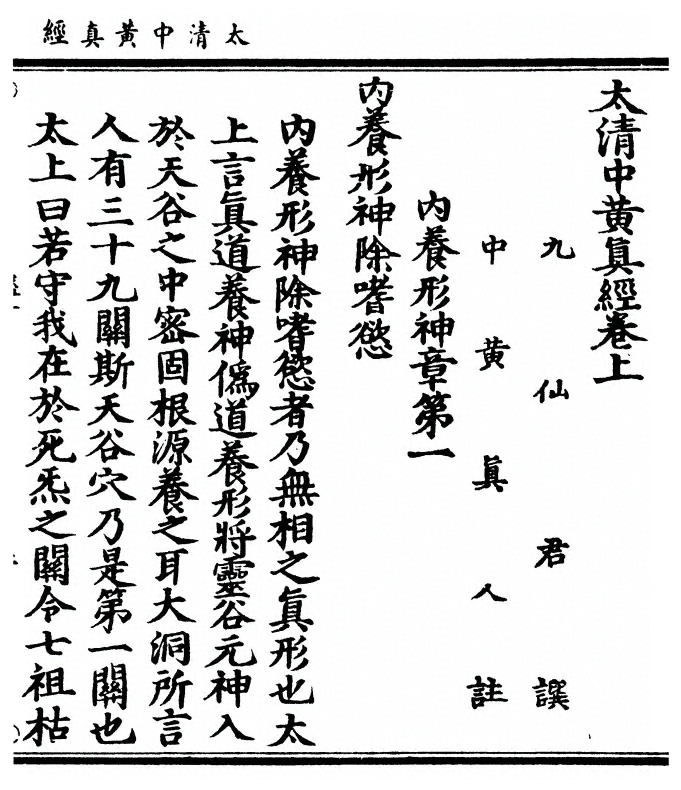 太清中黃真經
太清中黃眞經卷上
九仙君譔
中黃眞人註
內養形神章第一
內養形神除嗜慾
內養形神除嗜慾者乃無相之眞形也太
上言眞道養神僞道養形將靈谷元神入
於天谷之中密固根源養之耳大洞所言
人有三十九關斯天谷穴乃是第一關也
太上曰若守我在於死炁之關令七祖枯